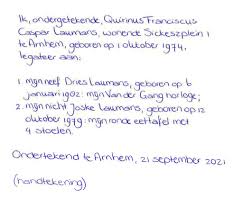 Ik, ondergetekende, Quirinus Franciscus
Caspar Laumans, wonende Sickeszplein 1
te Arnhem, geboren op 1 oktober 1974,
legateer aan:
1. mijn neef Dries Laumans, geboren op 6
januari 1982: mijn Van der Gang horloge;
2. mijn nicht Joske Laumans, geboren op 12
oktober 1979: mijn ronde eettafel met
4 stoelen.
Ondertekend te Arnhem, 21 september 2021
(handtekening)